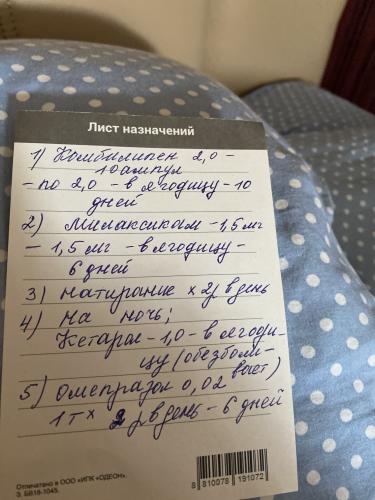 Лист назначений
1) Комбилипен 2,0 –
10 ампул
– по 2,0 – в ягодицу – 10
дней
2) Милаксикам – 1,5 мг
– 1,5 мг – в ягодицу –
6 дней
3) натирание х 2 р в день
4) На ночь;
Кетарол – 1,0 – в ягоди-
цу (обезболи-
вает)
5) Омепразол 0,02
1 т х 2 р в день – 6 дней
Отпечатано в ООО «ИПК «ОДЕОН».
З. БВ18-1045.
8 810078 191072